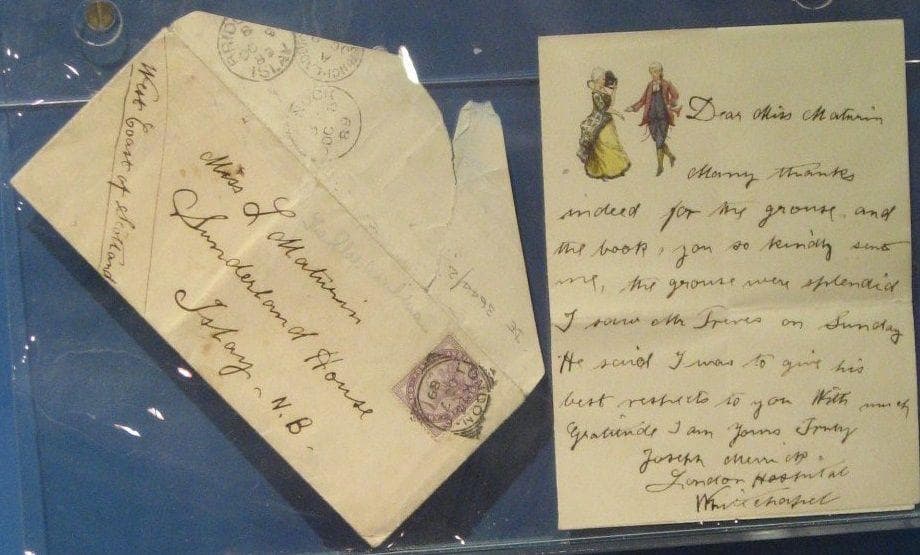 West Coast of Scotland
Miss L Maturin
Sunderland House
Islay. N.B.
LONDON
89
BRID
ISLAY
OC
89
Dear Miss Maturin
Many thanks
indeed for the grouse and
the book, you so kindly sent
me, the grouse were splendid
I saw Mr Treves on Sunday
He said I was to give his
best respects to you With much
Gratitude I am Yours Truly
Joseph Merrick.
London Hospital
Whitechapel